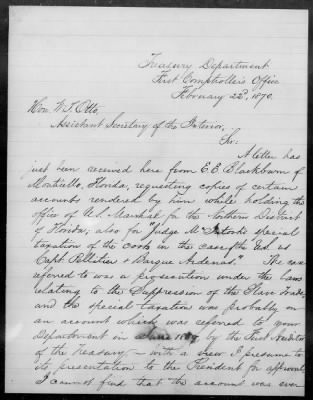 Treasury Department
First Comptroller's Office
February 22d, 1870.
Hon. W. T. Otto,
Assistant Secretary of the Interior,
Sir:
A letter has
just been received here from E. E. Blackburn of
Monticello, Florida, requesting copies of certain
accounts rendered by him while holding the
office of U.S. Marshal for the Northern District
of Florida; also for "Judge McIntosh special
taxation of the costs in the case of the U.S. vs
Capt. Pelletier & Barque Ardennes." The case
referred to was a prosecution under the laws
relating to the Suppression of the Slave Trade,
and the special taxation was probably on
an account which was referred to your
Department in June 1869 by the First Auditor
of the Treasury — with a view I presume to
its presentation to the President for approval.
I cannot find that the account was ever